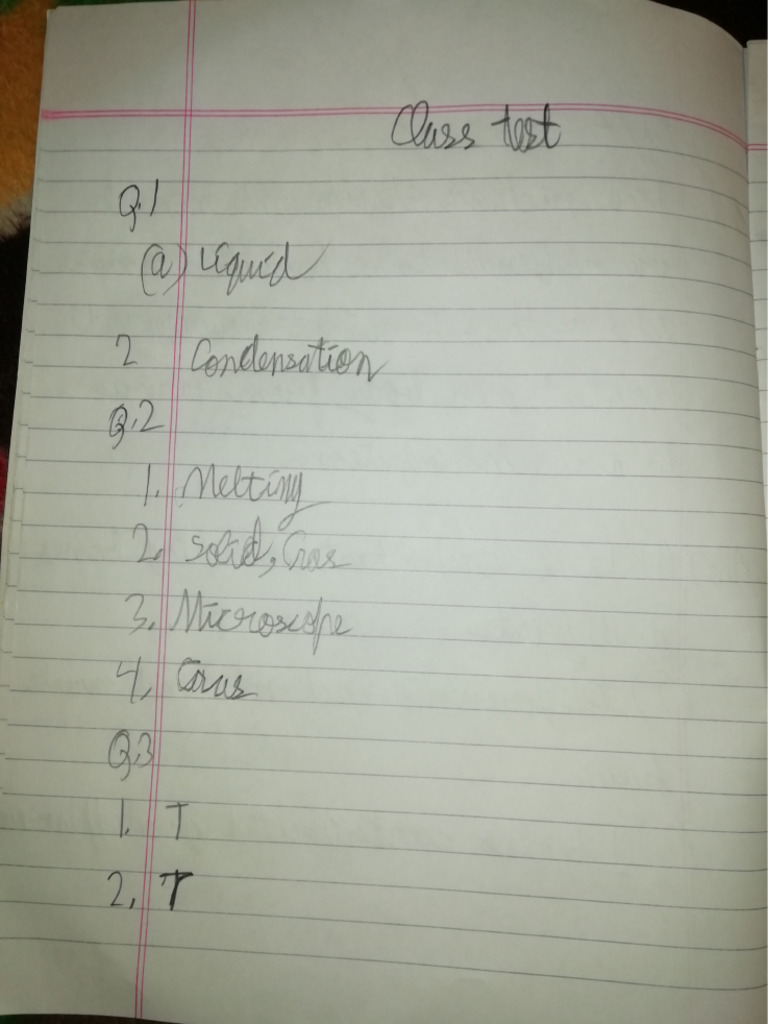 Class test
Q.1
(a) Liquid
2 Condensation
Q.2
1. Melting
2. Solid, Gas
3. Microscope
4. Gas
Q.3
1. T
2. T